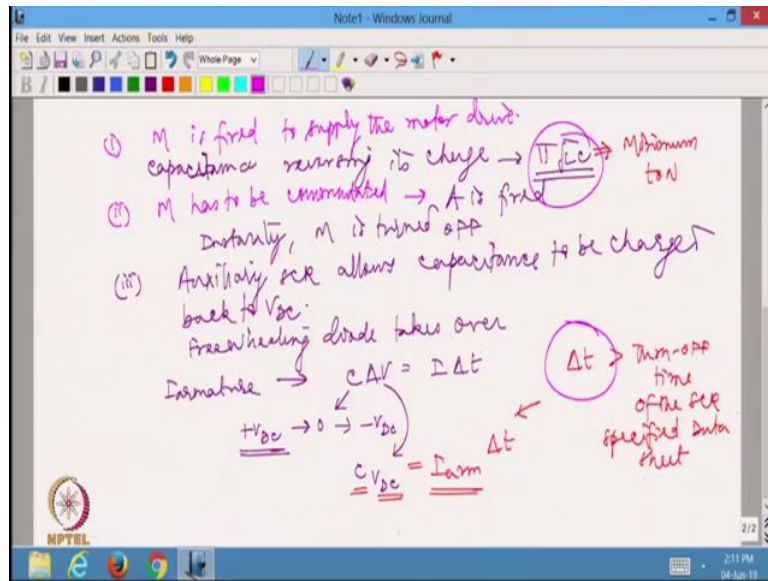 Note1 - Windows Journal
File Edit View Insert Actions Tools Help
Whole Page
B I
(i) M is fired to supply the motor drive.
capacitance reversing its charge → π√LC ⇒ Minimum
ton
(ii) M has to be commutated → A is fired
Instantly, M is turned off
(iii) Auxiliary SCR allows capacitance to be charged
back to VDC.
Freewheeling diode takes over
Iarmature → CΔV = IΔt
Δt > Turn-off
time
of the SCR
specified Data
sheet
+VDC → 0 → -VDC
C VDC = Iarm Δt
NPTEL
2/2
2:11 PM
04-Jun-19